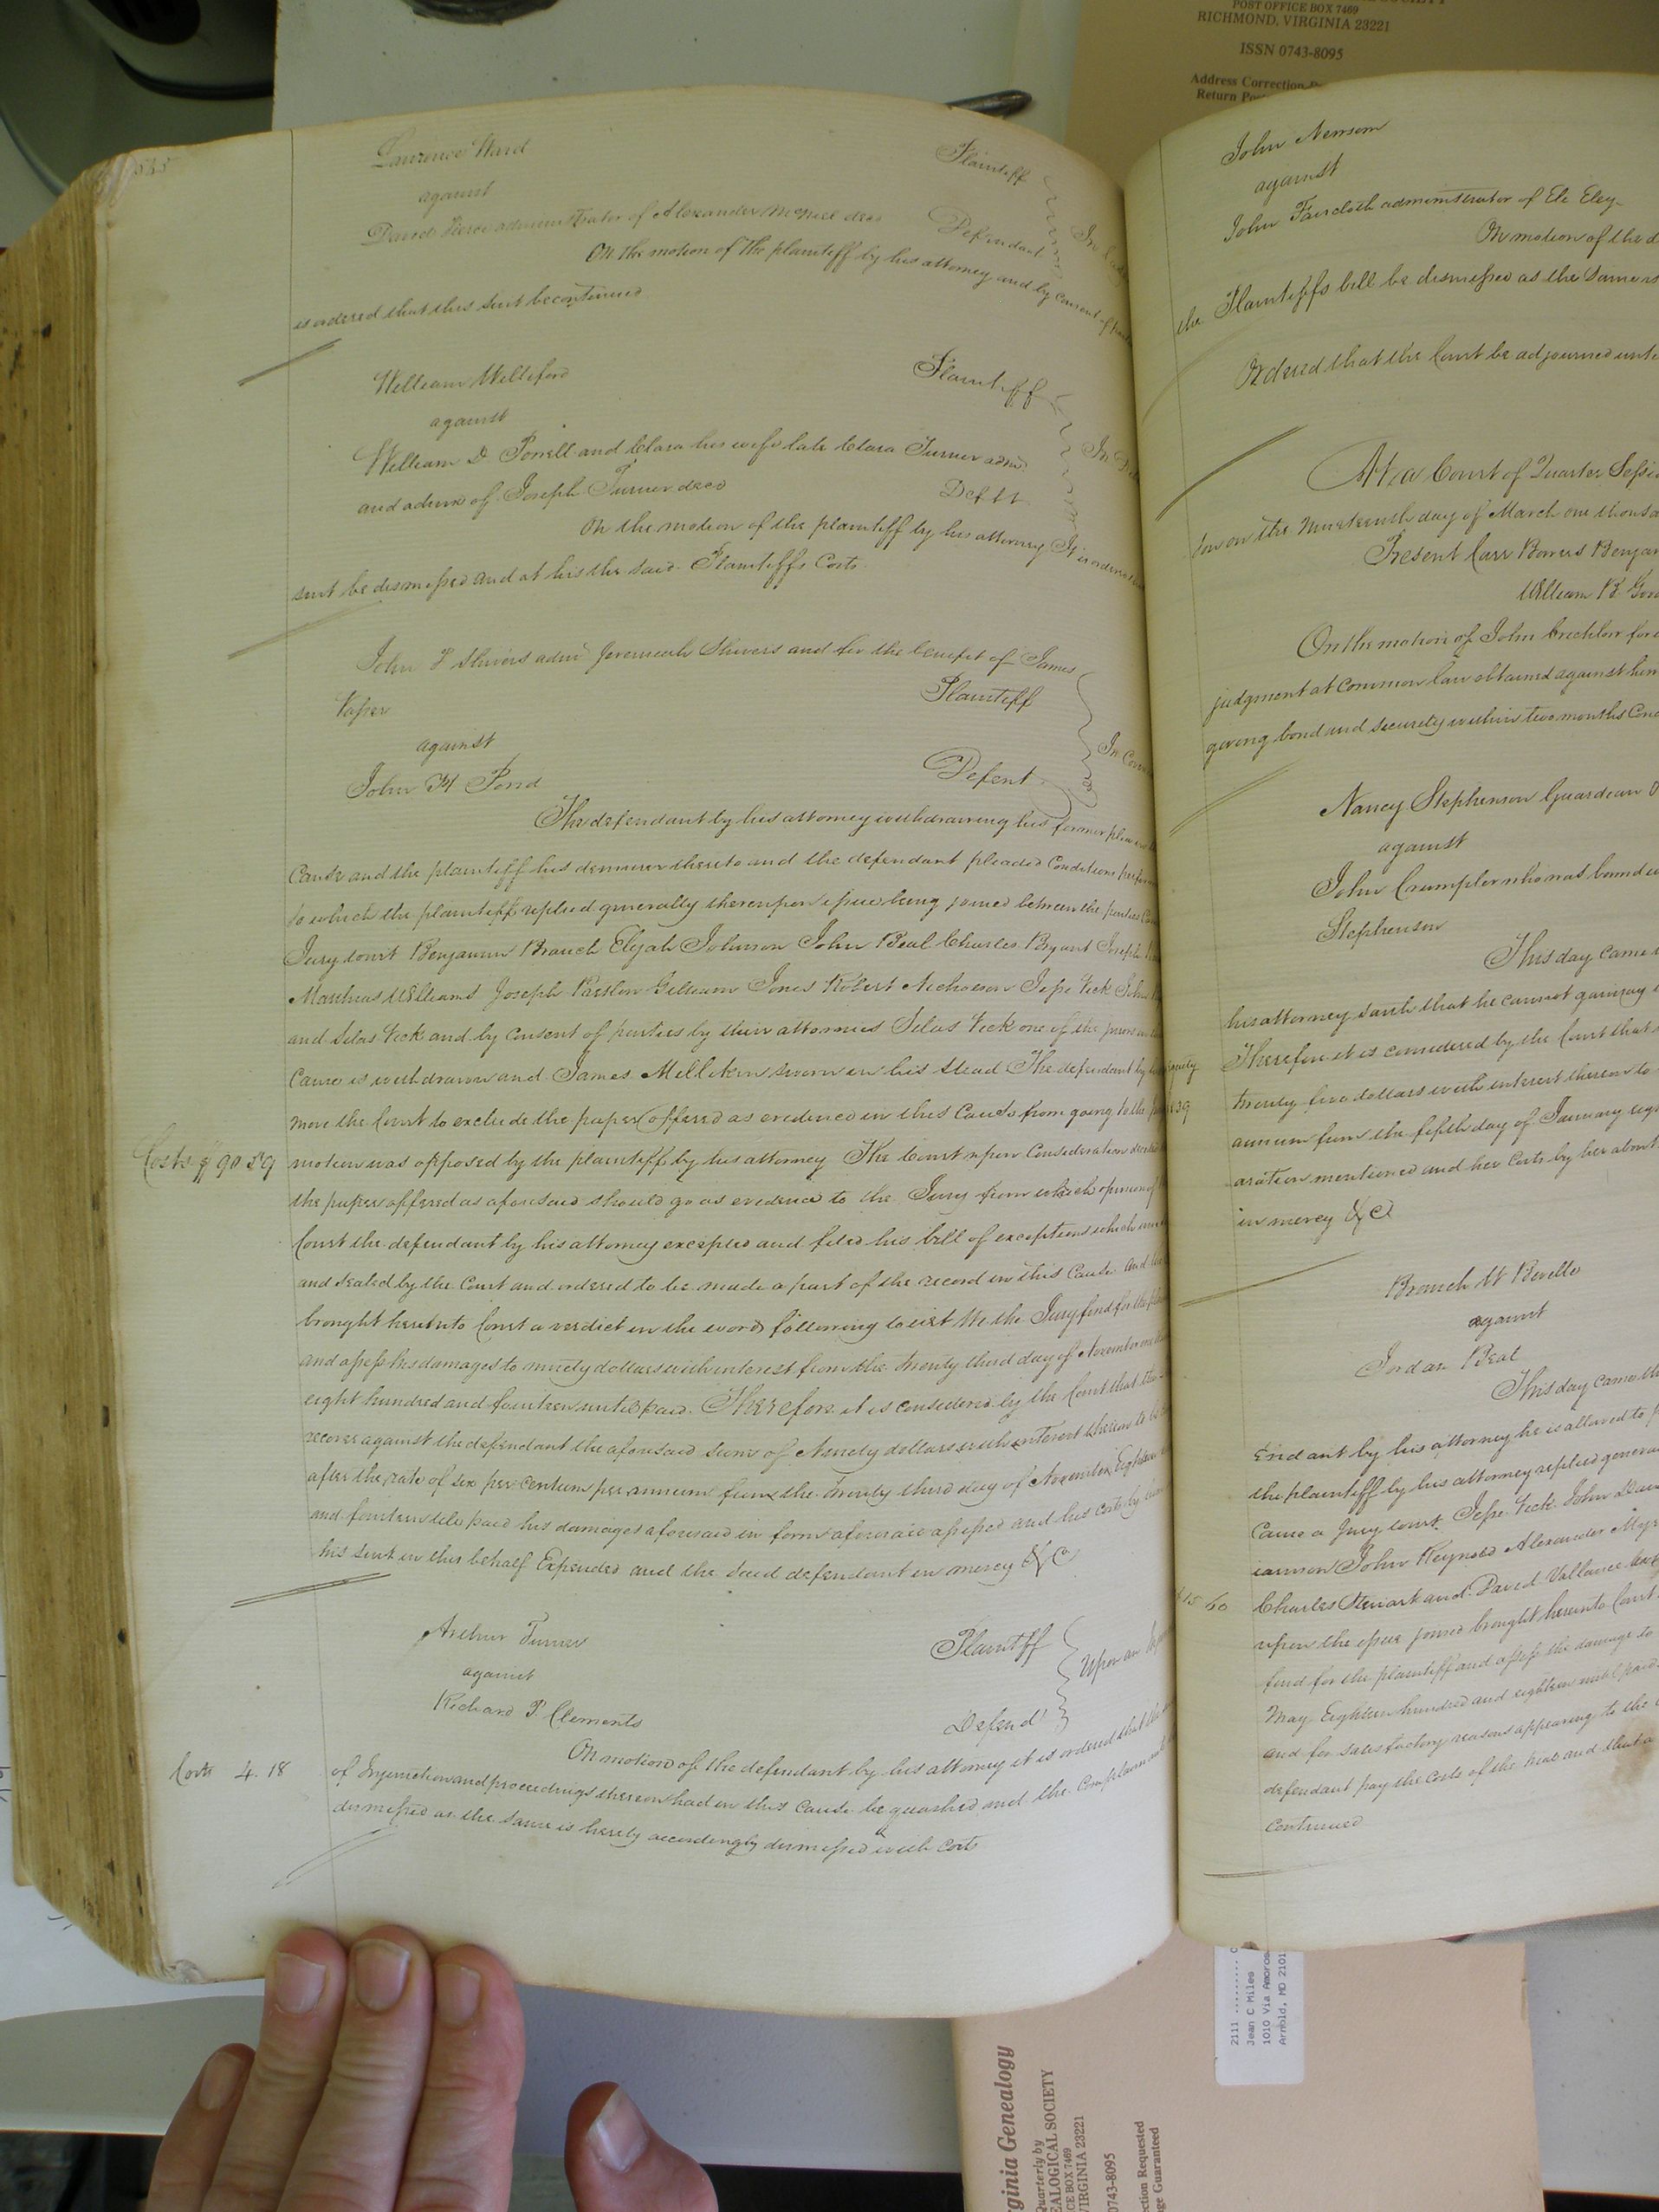 535
Laurence Ward
Plaintiff
against
David Pierce administrator of Alexander McNeil decd
Defendant
On the motion of the plaintiff by his attorney and by consent of
is ordered that this suit be continued
William Welliford
Plaintiff
against
William D Powell and Clara his wife late Clara Turner admx
and admx of Joseph Turner decd
Defts
On the motion of the plaintiff by his attorney It is ordered
suit be dismissed and at his the said Plaintiffs Costs
John Shivers admr Jeremiah Shivers and for the benefit of James
Vasser
Plaintiff
against
John H Pond
Defent
The defendant by his attorney withdrawing his former plea
Cause and the plaintiff his demurer thereto and the defendant pleaded Conditions
to which the plaintiff replied generally thereupon issue being joined between the parties
Jury towit Benjamin Branch Elijah Johnson John Beal Charles Bryant Joseph
Matthias Williams Joseph Gilliam Jones Robert Nicholson Jesse Vick John
and Silas Vick and by Consent of parties by their attornies Silas Vick one of the jurors
Cause is withdrawn and James Millikin sworn in his stead The defendant by
move the Court to exclude the paper offered as evidence in this Cause from going to the
Costs $90 59
motion was opposed by the plaintiff by his attorney The Court upon Consideration
the paper offered as aforesaid should go as evidence to the Jury from which opinion of
Court the defendant by his attorney excepted and filed his bill of exceptions which
and sealed by the Court and ordered to be made a part of the record in this Cause And
brought hereinto Court a verdict in the words following towit We the Jury find for the
and assess his damages to ninety dollars with interest from the twenty third day of November
eight hundred and fourteen until paid. Therefore it is considered by the Court that the
recover against the defendant the aforesaid sum of Ninety dollars with interest thereon to be
after the rate of six per centum per annum from the twenty third day of November Eighteen
and fourteen till paid his damages aforesaid in form aforesaid assessed and his costs by
his suit in this behalf Expended and the said defendant in mercy &C
Arthur Turner
Plaintiff
Upon an
against
Richard P. Clements
Defend
On motion of the defendant by his attorney it is ordered that the
Costs 4.18
of Injunction and proceedings thereon had in this Cause be quashed and the Complainant
dismissed as the same is hereby accordingly dismissed with Costs
John Newsom
against
John Faircloth administrator of Eli Eley
On motion of the d
the Plaintiffs bill be dismissed as the same is
Ordered that the Court be adjourned unti
At a Court of Quarter Sessi
ton on the Nineteenth day of March one thousa
Present Carr Bowers Benja
William B. Goo
On the motion of John Crichlow for
judgment at Common law obtained against him
giving bond and security within two months
Nancy Stephenson Guardian
against
John Crumpler who was bound
Stephenson
This day came
his attorney saith that he cannot gainsay
Therefore it is considered by the Court that
twenty five dollars with interest thereon to
annum from the fifth day of January eigh
aration mentioned and her Costs by her about
in mercy &C
Branch W Bevelle
against
Jordan Beal
This day came th
endant by his attorney he is allowed to
the plaintiff by his attorney replied genera
Cause a Jury towit Jesse Vick John
John Reynolds Alexander
15 60
Charles Stewart and David Vallance
upon the issue joined brought hereinto Court
find for the plaintiff and assess the damage to
May Eighteen hundred and eighteen until paid
and for satisfactory reasons appearing to the
defendant pay the Costs of the and that a
continued
POST OFFICE BOX 7469
RICHMOND, VIRGINIA 23221
ISSN 0743-8095
Address Correction
Return
2111
Jean C Miles
1010 Via Amoros
Arnold, MD 2101
ginia Genealogy
Quarterly by
EALOGICAL SOCIETY
CE BOX 7469
VIRGINIA 23221
0743-8095
ction Requested
ge Guaranteed